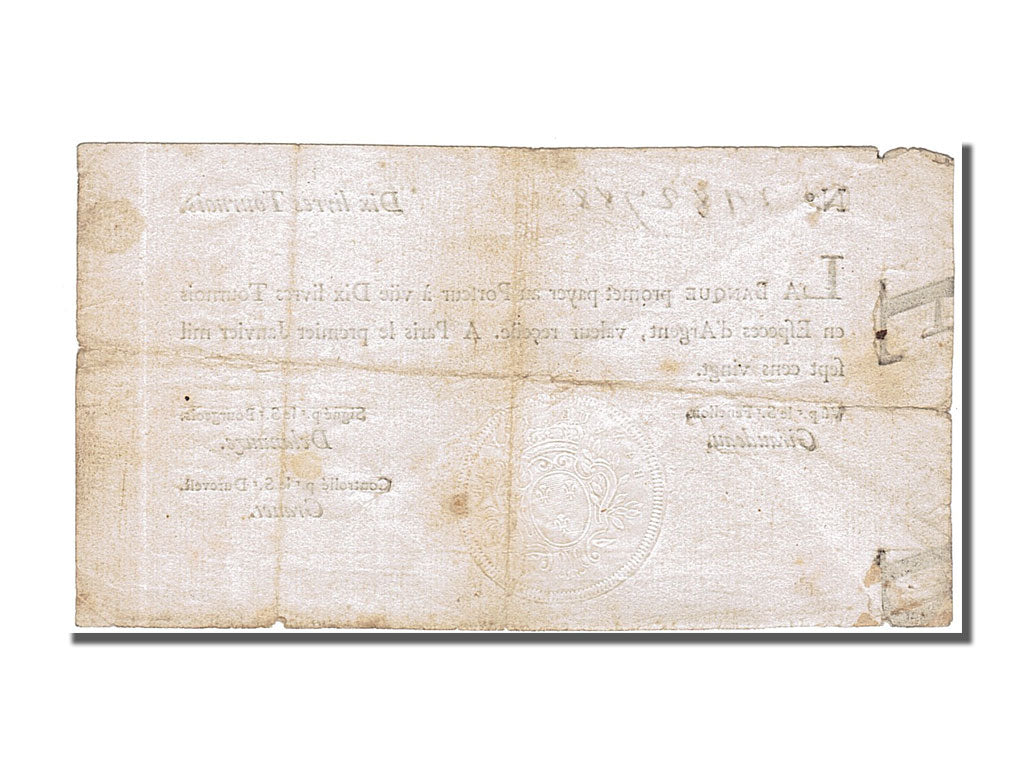 N.º 1182788 Dix livres Tournois.
LA BANQUE promet payer au Porteur à vüe Dix livres Tournois
en Especes d'Argent, valeur reçeüe. A Paris le premier Janvier mil
sept cens vingt.
Vû p.r le S.r Fenellon. Signé p.r le S.r Bourgeois.
Giraudeau. Delanauze.
Controllé p.r le S.r Durevest.
Granet.